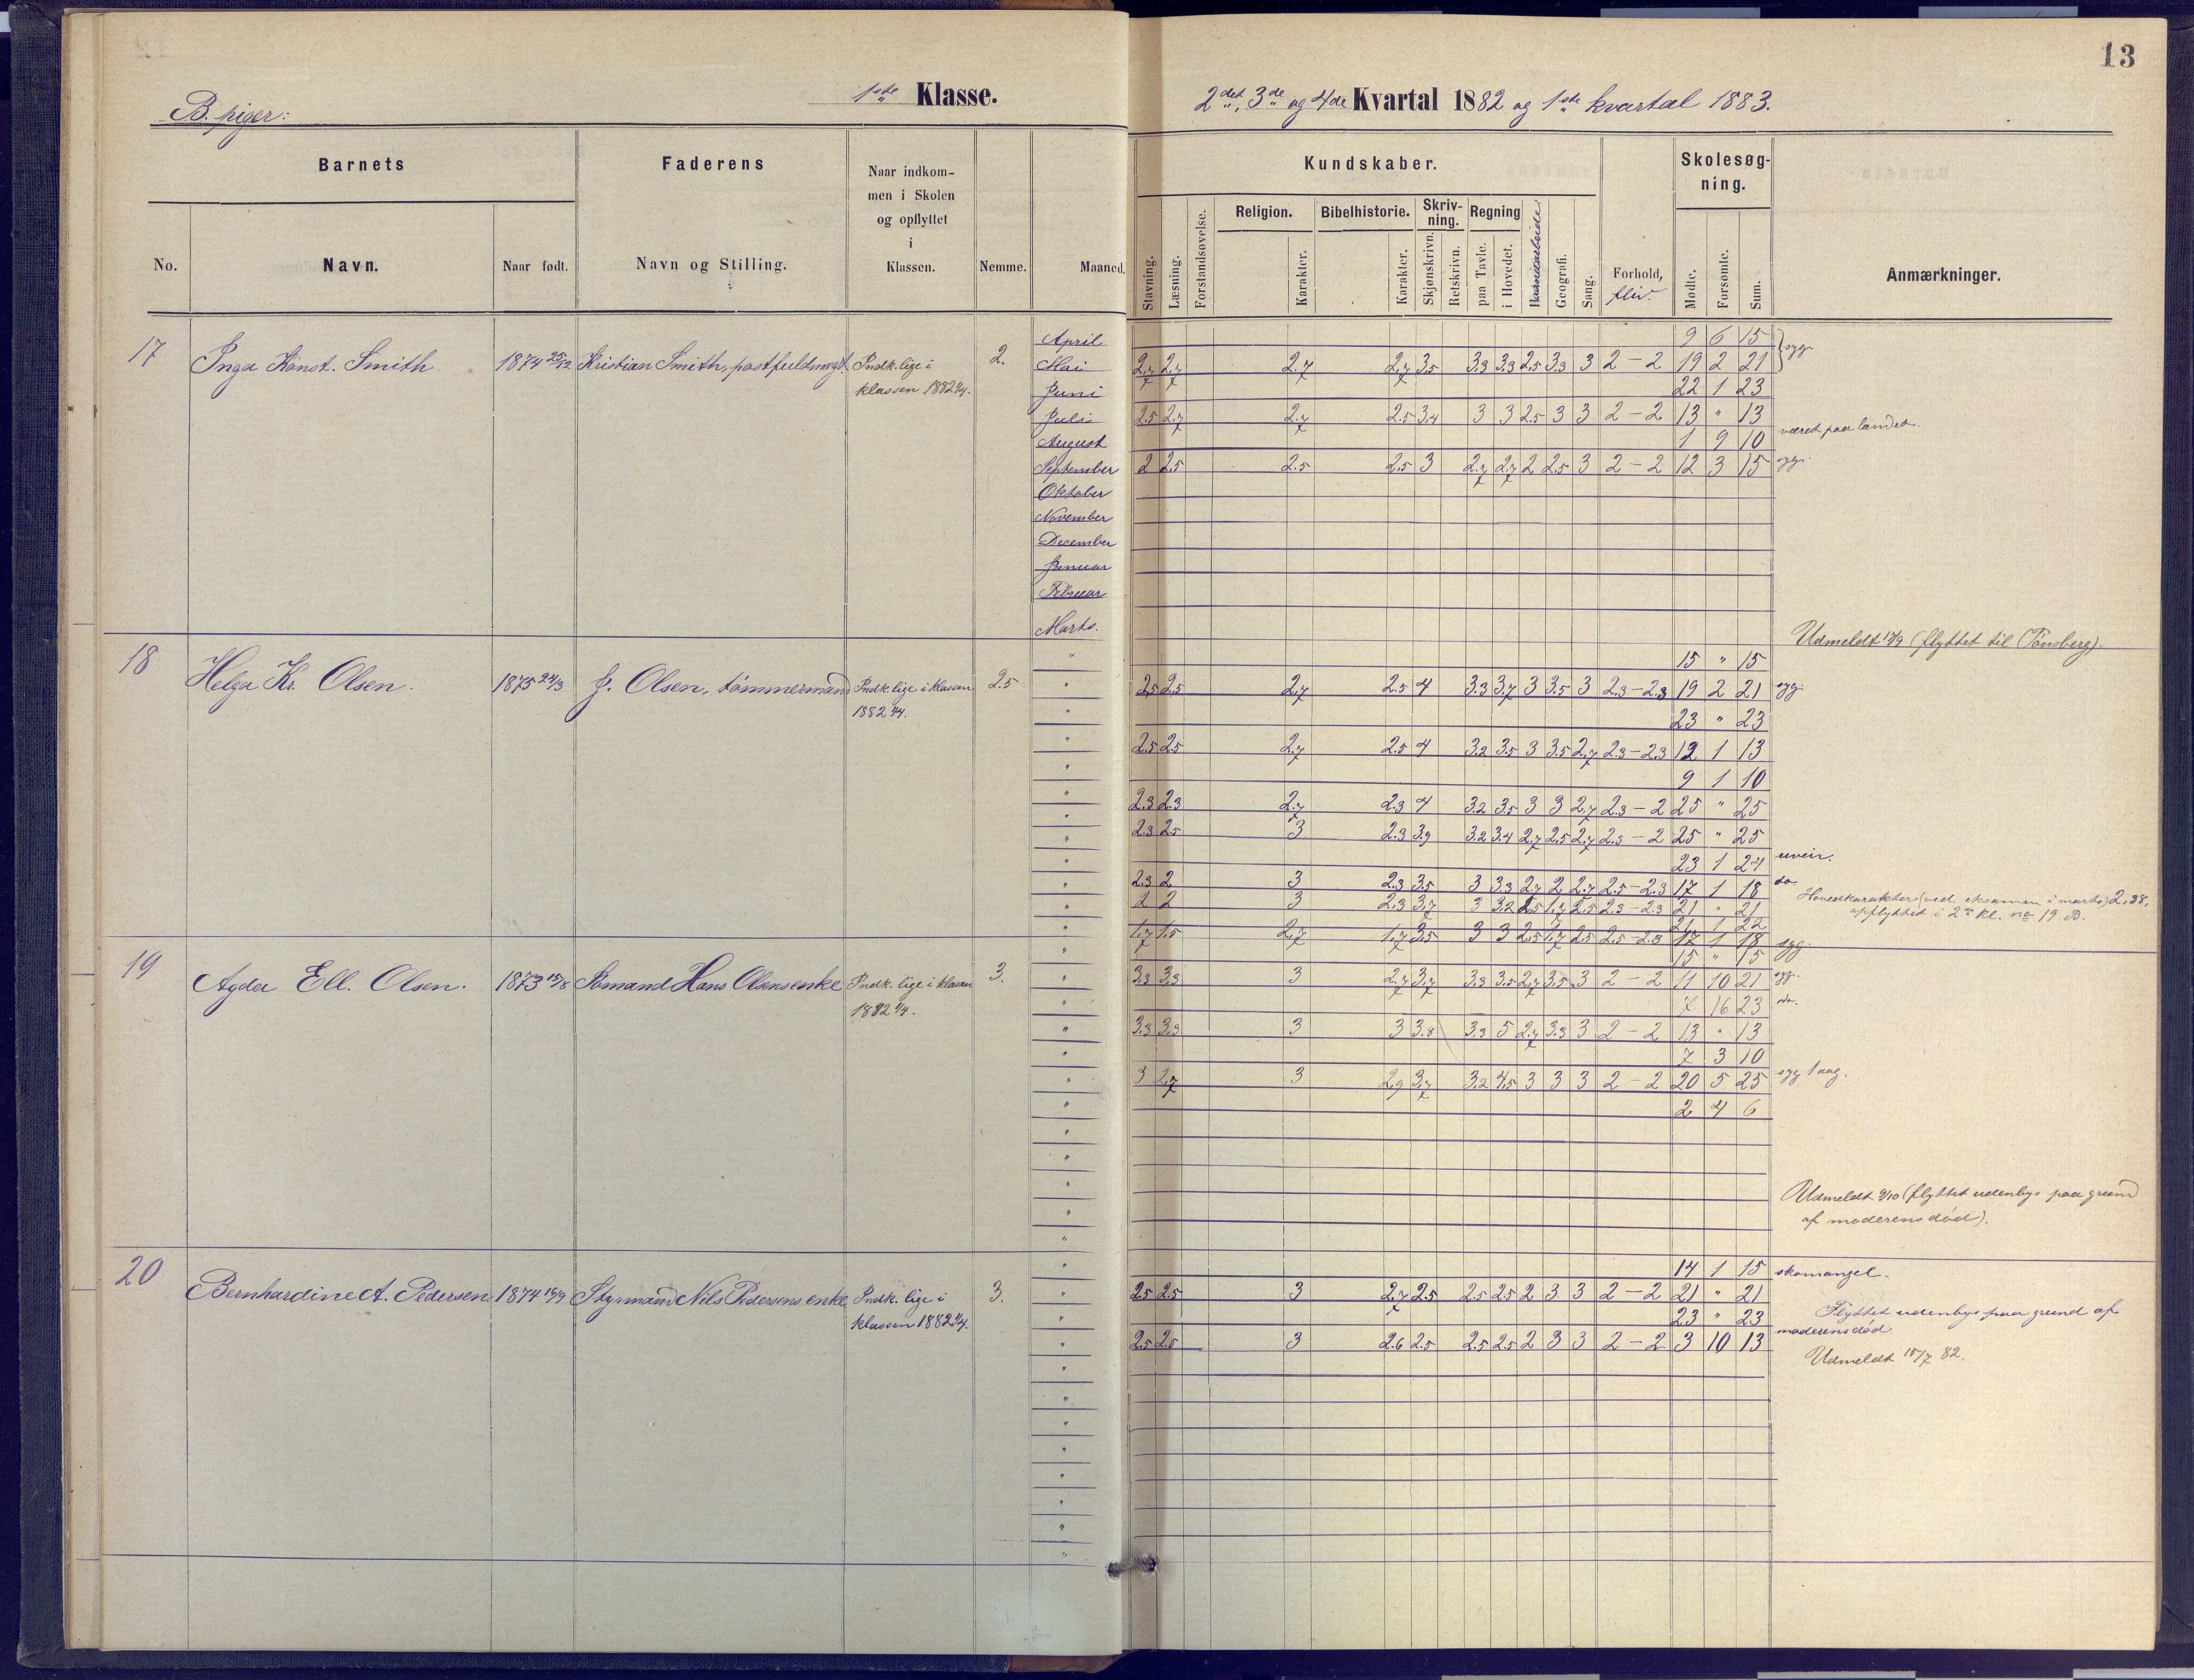 13
B. piger:
1ste Klasse.
2det, 3de og 4de Kvartal 1882 og 1ste kvartal 1883.
Barnets
Faderens
Naar indkom-
men i Skolen
og opflyttet
i
Klassen.
No.
Navn.
Naar født.
Navn og Stilling.
Nemme.
Maaned.
Kundskaber.
Stavning.
Læsning.
Forstandsøvelse.
Religion.
Karakter.
Bibelhistorie.
Karakter.
Skriv-
ning.
Skjønskrivn.
Retskrivn.
Regning
paa Tavle.
i Hovedet.
Haandarbeide
Geografi.
Sang.
Forhold,
flid.
Skolesøg-
ning.
Mødte.
Forsømte.
Sum.
Anmærkninger.
17 Inga Konst. Smith 1874 25/12 Kristian Smith, postfuldmægt. Indk. lige i
klassen 1882 1/4. 2.
April 9 6 15 syg.
Mai 2,7 2,7 2.7 2,7 3.5 3.3 3.3 2.5 3.3 3 2-2 19 2 21
Juni 22 1 23
Juli 2.5 2,7 2.7 2.5 3.4 3 3 2.5 3 3 2-2 13 " 13
August 1 9 10 været paa landet.
September 2 2.5 2.5 2.5 3 2.7 2.7 2 2.5 3 2-2 12 3 15 syg.
Oktober
November
December
Januar
Februar
Marts. Udmeldt 19/9 (flyttet til Tönsberg).
18 Helga Kr. Olsen. 1875 24/3 J. Olsen, tömmermand Indk. lige i klassen
1882 1/4. 2.5
15 " 15
2.5 2.5 2,7 2.5 4 3.3 3,7 3 3.5 3 2.3-2.3 19 2 21 syg.
23 " 23
2.5 2.5 2,7 2.5 4 3.2 3.5 3 3.5 2,7 2.3-2.3 12 1 13
9 1 10
2.3 2.3 2.7 2.3 4 3.2 3.5 3 3 2,7 2.3-2 25 " 25
2.3 2.5 3 2.3 3.9 3.2 3.4 2.7 2.5 2.7 2.3-2 25 " 25
23 1 24 uveir.
2.3 2 3 2.3 3.5 3 3.3 2.7 2 2.7 2.5-2.3 17 1 18 do.
2 2 3 2.3 3,7 3 3.2 2.5 1.7 2.5 2.3-2.3 21 " 21
Hovedkarakter (ved eksamen i marts) 2.38,
opflyttet i 2den kl. no 19 B.
21 1 22
1,7 1.5 2,7 1.7 3.5 3 3 2.5 1.7 2.5 2.5-2.3 17 1 18 syg.
19 Agda Ell. Olsen. 1873 15/8 Sömand Hans Olsens enke Indk. lige i klassen
1882 1/4. 3.
15 " 15
3.3 3.3 3 2.7 3.7 3.3 3.5 2.7 3.5 3 2-2 11 10 21 syg.
7 16 23 do.
3.3 3.3 3 3 3.8 3.3 5 2.7 3.3 3 2-2 13 " 13
7 3 10
3 2.7 3 2.9 3.7 3.2 4.5 3 3 3 2-2 20 5 25 syg 1 aag.
2 4 6
Udmeldt 9/10 (flyttet udenbys paa grund
af moderens död).
20 Bernhardine A. Pedersen 1874 16/9 Styrmand Nils Pedersens enke Indk. lige i
klassen 1882 1/4. 3.
14 1 15 skomangel.
2.5 2.5 3 2.7 2.5 2.5 2.5 2 3 3 2-2 21 " 21
23 " 23 Flyttet udenbys paa grund af
moderens död.
2.5 2.5 3 2.6 2.5 2.5 2.5 2 3 3 2-2 3 10 13
Udmeldt 15/7 82.